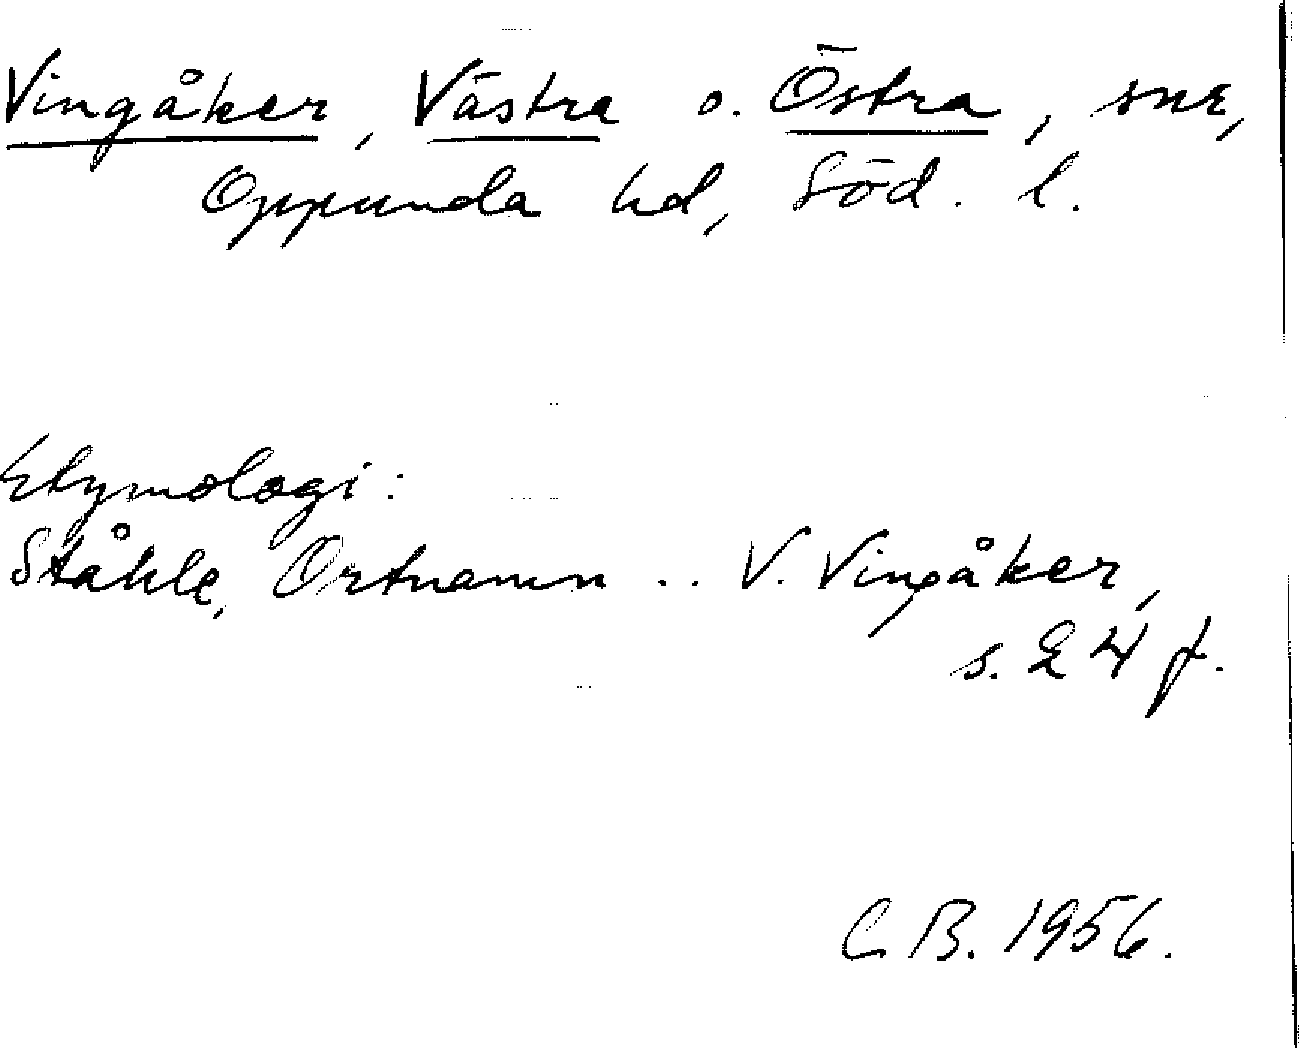 Vingåker, Västra o. Östra, snr,
Oppunda hd, Söd. l.
Etymologi:
Ståhle, Ortnamn .. V. Vingåker,
s. 24 f.
C B. 1956.